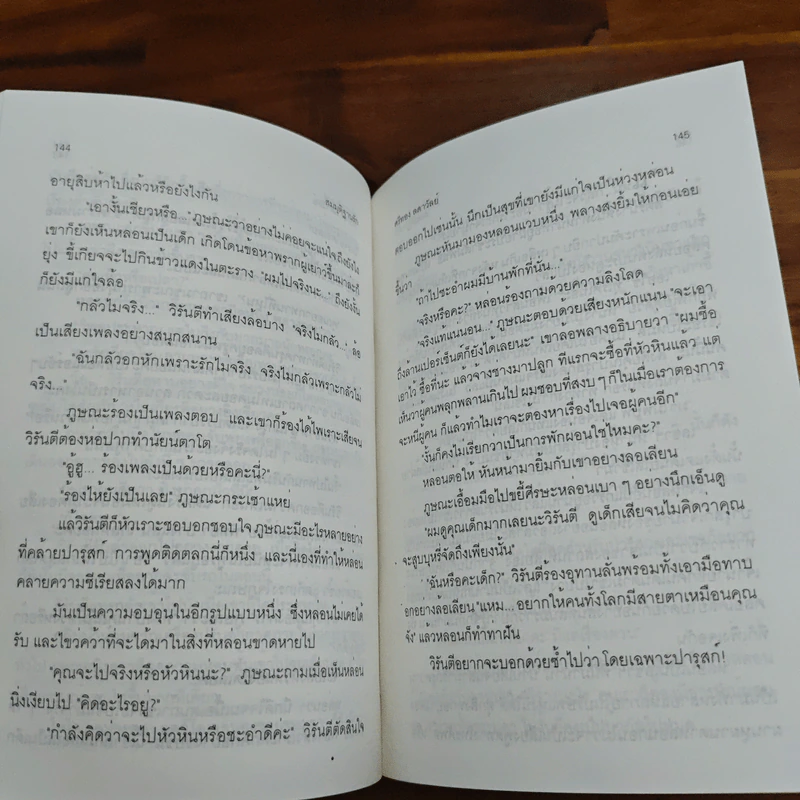 144
อายุสิบห้าไปแล้วหรือยังไงกัน
"เอางั้นเชียวหรือ..." ภูษณะว่าอย่างไม่ค่อยจะแน่ใจ ถึงยังไง
เขาก็ยังเห็นหล่อนเป็นเด็ก เกิดโดนข้อหาพรากผู้เยาว์ขึ้นมาละก็
ยุ่ง ขี้เกียจจะไปกินข้าวแดงในตะราง "ผมไปจริงนะ..." ถึงยังงั้น
ก็ยังมีแก่ใจล้อ
"กลัวไม่จริง..." วิรันตีทำเสียงล้อบ้าง "จริงไม่กลัว" ล้อ
เป็นเสียงเพลงอย่างสนุกสนาน
"ฉันกลัวอกหักเพราะรักไม่จริง จริงไม่กลัวเพราะกลัวไม่
จริง..."
ภูษณะร้องเป็นเพลงตอบ และเขาก็ร้องได้ไพเราะเสียจน
วิรันตีต้องห่อปากทำนัยน์ตาโต
"อู้ฮู... ร้องเพลงเป็นด้วยหรือคะนี่?"
"ร้องไห้ยังเป็นเลย" ภูษณะกระเซ้าแหย่
แล้ววิรันตีก็หัวเราะชอบอกชอบใจ ภูษณะมีอะไรหลายอย่าง
ที่คล้ายปารุสก์ การพูดติดตลกนี่ก็หนึ่ง และนี่เองที่ทำให้หล่อน
คลายความซีเรียสลงได้มาก
มันเป็นความอบอุ่นในอีกรูปแบบหนึ่ง ซึ่งหล่อนไม่เคยได้
รับ และไขว่คว้าที่จะได้มาในสิ่งที่หล่อนขาดหายไป
"คุณจะไปจริงหรือหัวหินน่ะ?" ภูษณะถามเมื่อเห็นหล่อน
นิ่งเงียบไป "คิดอะไรอยู่?"
"กำลังคิดว่าจะไปหัวหินหรือชะอำดีค่ะ" วิรันตีตัดสินใจ
145
ตอบออกไปเช่นนั้น นึกเป็นสุขที่เขายังมีแก่ใจเป็นห่วงหล่อน
ภูษณะหันมามองหล่อนแวบหนึ่ง พลางส่งยิ้มให้ก่อนเอ่ย
ขึ้นว่า
"ถ้าไปชะอำผมมีบ้านพักที่นั่น..."
"จริงหรือคะ?" หล่อนร้องถามด้วยความลิงโลด
"จริงแท้แน่นอน..." ภูษณะตอบด้วยเสียงหนักแน่น "จะเอา
ถึงล้านเปอร์เซ็นต์ก็ยังได้เลยนะ" เขาล้อพลางอธิบายว่า "ผมซื้อ
เอาไว้ ซื้อที่น่ะ แล้วจ้างช่างมาปลูก ที่แรกจะซื้อที่หัวหินแล้ว แต่
เห็นว่าผู้คนพลุกพล่านเกินไป ผมชอบที่สงบๆ ก็ในเมื่อเราต้องการ
จะหนีผู้คน ก็แล้วทำไมเราจะต้องหาเรื่องไปเจอผู้คนอีก"
"งั้นก็คงไม่เรียกว่าเป็นการพักผ่อนใช่ไหมคะ?"
หล่อนต่อให้ หันหน้ามายิ้มกับเขาอย่างล้อเลียน
ภูษณะเอื้อมมือไปขยี้ศีรษะหล่อนเบา ๆ อย่างนึกเอ็นดู
"ผมดูคุณเด็กมากเลยนะวิรันตี ดูเด็กเสียจนไม่คิดว่าคุณ
จะสูบบุหรี่จัดถึงเพียงนั้น"
"ฉันหรือคะเด็ก?" วิรันตีร้องอุทานลั่นพร้อมทั้งเอามือทาบ
อกอย่างล้อเลียน "แหม... อยากให้คนทั้งโลกมีสายตาเหมือนคุณ
จัง" แล้วหล่อนก็ทำท่าฝัน
วิรันตีอยากจะบอกด้วยซ้ำไปว่า โดยเฉพาะปารุสก์!